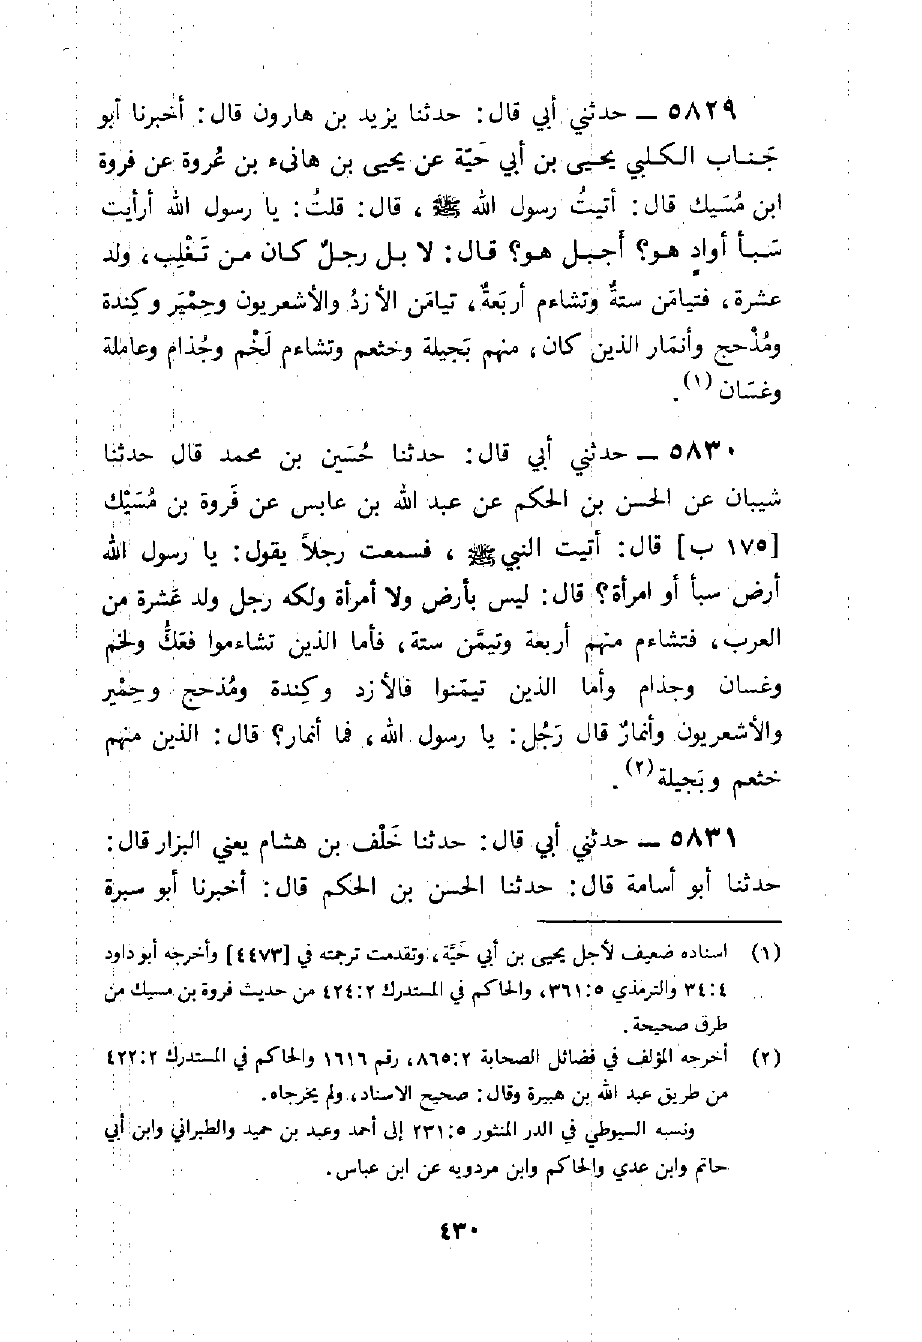 ٥٨٢٩ ــ حدثني أبي قال: حدثنا يزيد بن هارون قال: أخبرنا أبو
جَناب الكلبي يحيى بن أبي حَيّة عن يحيى بن هانىء بن عُروة عن فروة
ابن مُسَيك قال: أتيتُ رسول الله ﷺ، قال: قلتُ: يا رسول الله أرأيت
سَبأ أوادٍ هو؟ أجبل هو؟ قال: لا بل رجلٌ كان من تَغْلِب، ولد
عشرة، فتيامَن ستةٌ وتشاءم أربَعةٌ، تيامَن الأزدُ والأشعريون وحِمْيَر وكِندة
ومُذْحج وأنمَار الذين كان، منهم بَجيلة وخثعم وتشاءم لَخْم وجُذام وعاملة
وغسّان (١).
٥٨٣٠ ــ حدثني أبي قال: حدثنا حُسَين بن محمد قال حدثنا
شيبان عن الحسن بن الحكم عن عبد الله بن عابس عن فَروة بن مُسَيْك
[١٧٥ ب] قال: أتيت النبي ﷺ، فسمعت رجلاً يقول: يا رسول الله
أرض سبأ أو امرأة؟ قال: ليس بأرض ولا أمرأة ولكه رجل ولد عَشرة من
العرب، فتشاءم منهم أربعة وتيمَّن ستة، فأما الذين تشاءموا فعَكُّ ولخم
وغسان وجذام وأما الذين تيمّنوا فالأزد وكِندة ومُذحج وحِمْير
والأشعريون وأنمارٌ قال رَجُل: يا رسول الله، فما أنمار؟ قال: الذين منهم
خثعم وبَجيلة (٢).
٥٨٣١ ــ حدثني أبي قال: حدثنا خَلْف بن هشام يعني البزار قال:
حدثنا أبو أسامة قال: حدثنا الحسن بن الحكم قال: أخبرنا أبو سبرة
(١) اسناده ضعيف لأجل يحيى بن أبي حَيَّة، وتقدمت ترجمته في [٤٤٧٣] وأخرجه أبو داود
٣٤:٤ والترمذي ٣٦١:٥، والحاكم في المستدرك ٤٢٤:٢ من حديث فروة بن مسيك من
طرق صحيحة.
(٢) أخرجه المؤلف في فضائل الصحابة ٨٦٥:٢، رقم ١٦١٦ والحاكم في المستدرك ٤٢٢:٢
من طريق عبد الله بن هبيرة وقال: صحيح الاسناد، ولم يخرجاه.
ونسبه السيوطي في الدر المنثور ٢٣١:٥ إلى أحمد وعبد بن حميد والطبراني وابن أبي
حاتم وابن عدي والحاكم وابن مردويه عن ابن عباس.
٤٣٠